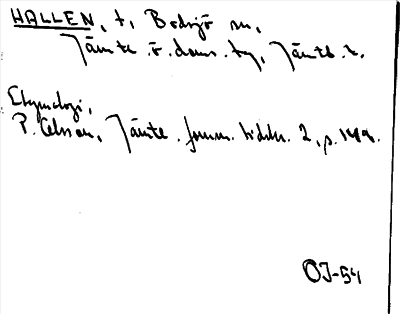 HALLEN, t, Bodsjö sn,
Jämtl. ö. doms. tg, Jämtl. l.
Etymologi,
P. Olsson, Jämtl. fornm. tidskr. 2, s. 149.
OJ-54